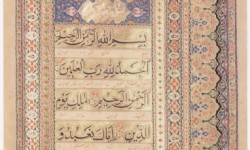 بسم الله الرحمن الرحيم
الحمد لله رب العلمين
الرحمن الرحيم الملك يوم
الدين اياك نعبد و